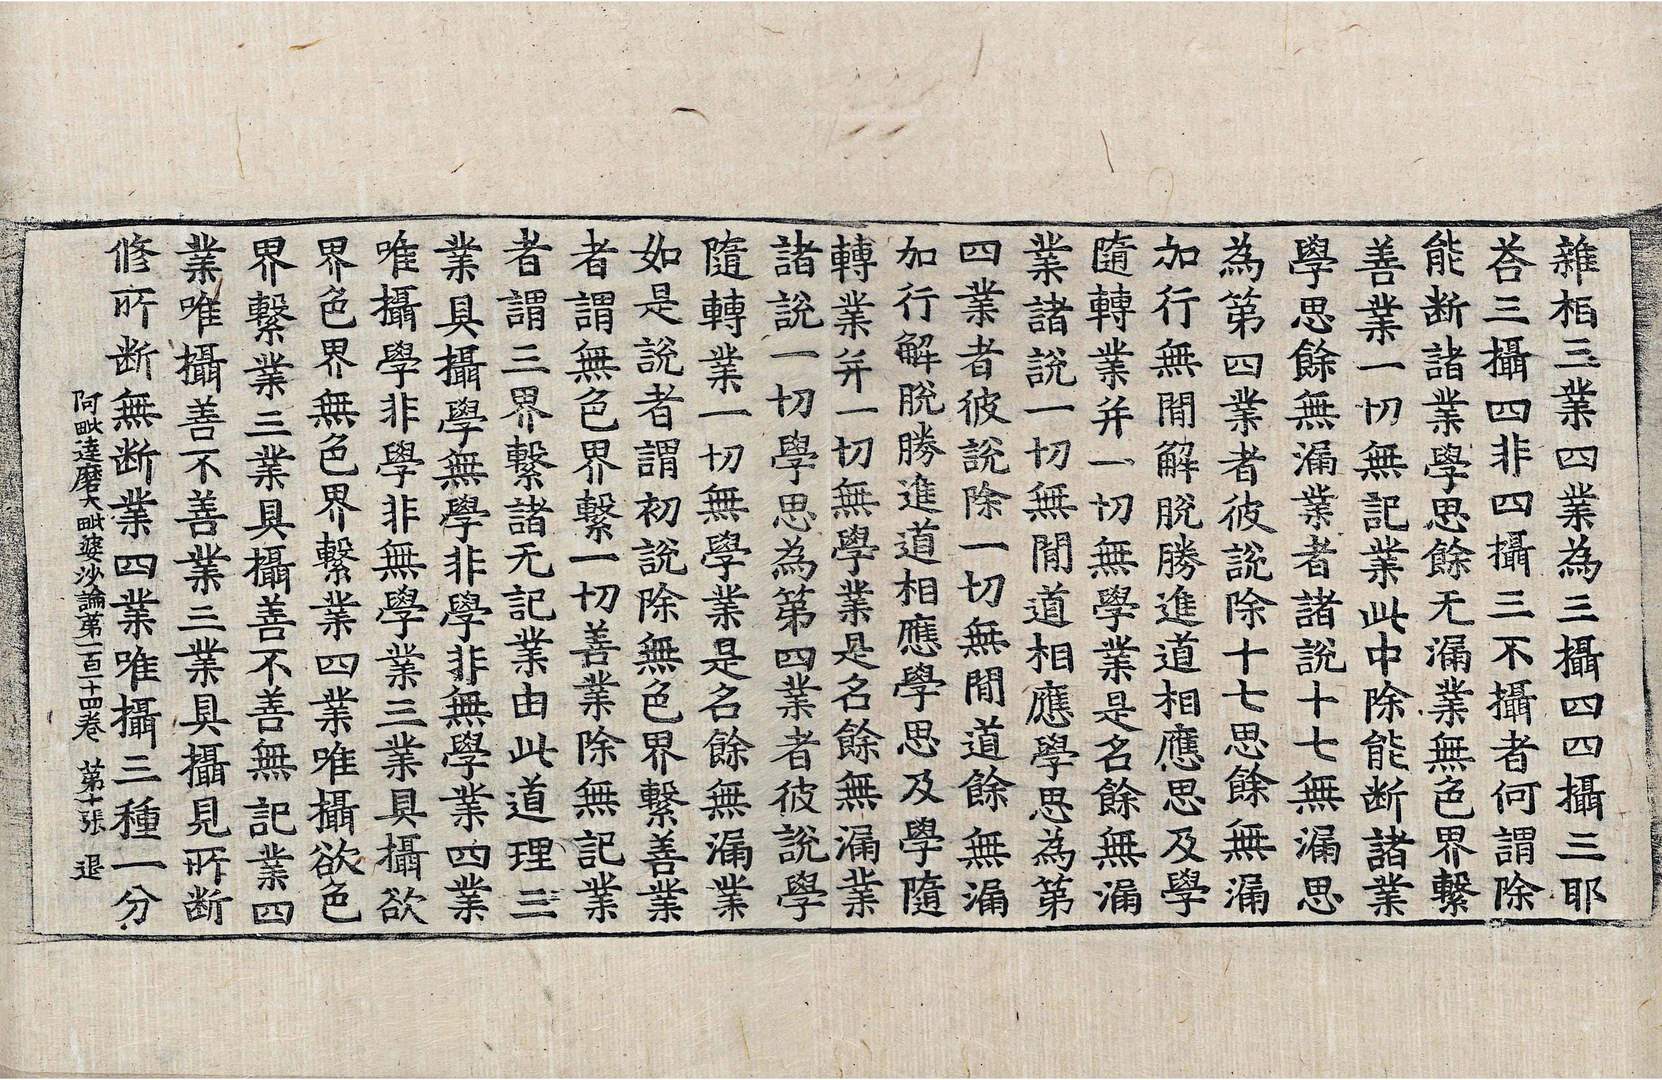 雜相三業四業為三攝四四攝三耶
荅三攝四非四攝三不攝者何謂除
能断諸業學思餘无漏業無色界繫
善業一切無記業此中除能断諸業
學思餘無漏業者諸說十七無漏思
為第四業者彼說除十七思餘無漏
加行無閒解脫勝進道相應思及學
隨轉業并一切無學業是名餘無漏
業諸說一切無閒道相應學思為第
四業者彼說除一切無閒道餘無漏
加行解脫勝進道相應學思及學隨
轉業并一切無學業是名餘無漏業
諸說一切學思為第四業者彼說學
隨轉業一切無學業是名餘無漏業
如是說者謂初說除無色界繫善業
者謂無色界繫一切善業除無記業
者謂三界繫諸无記業由此道理三
業具攝學無學非學非無學業四業
唯攝學非學非無學業三業具攝欲
界色界無色界繫業四業唯攝欲色
界繫業三業具攝善不善無記業四
業唯攝善不善業三業具攝見所断
修所断無断業四業唯攝三種一分
阿毗達磨大毗婆沙論第一百一十四卷　第十張　退